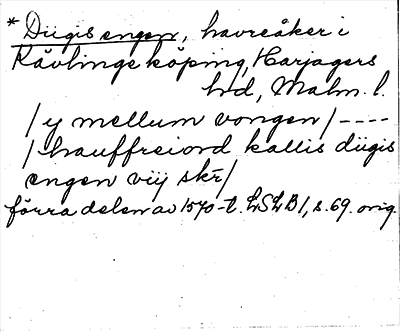 * Dügis engen, havreåker i
Kävlinge köping, Harjagers
hd, Malm. l.
/ y mellum vongen / ----
/ hauffreiord kallis dügis
engen viij skr̄ /
förra delen av 1570-t. LSLB 1, s. 69. orig.